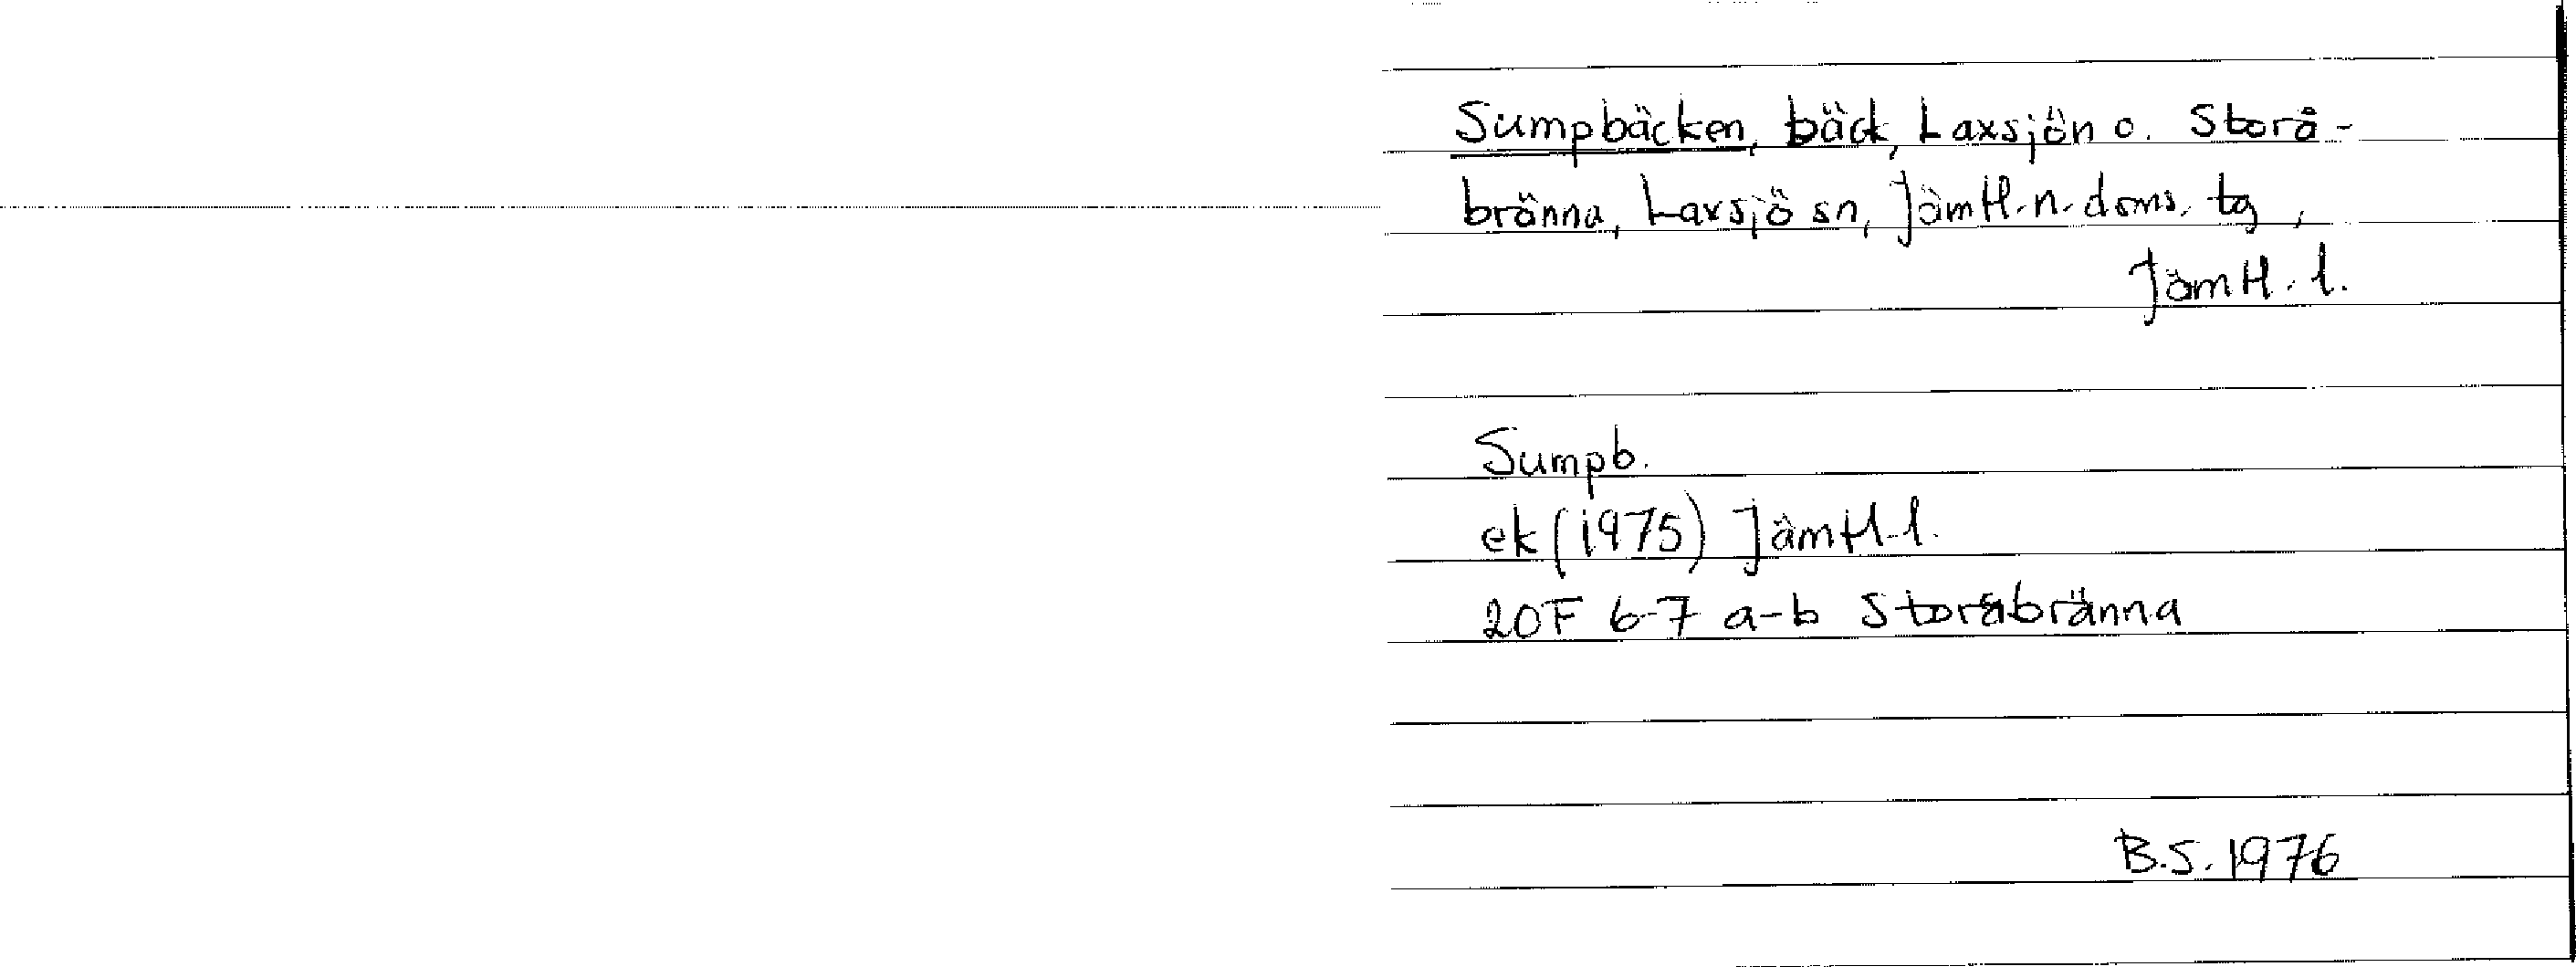 Sumpbäcken, bäck, Laxsjön o. Storå-
bränna, Laxsjö sn, Jämtl. n. doms. tg,
Jämtl. l.
Sumpb.
ek (1975) Jämtl. l.
20F 6-7 a-b Storåbränna
B.S. 1976